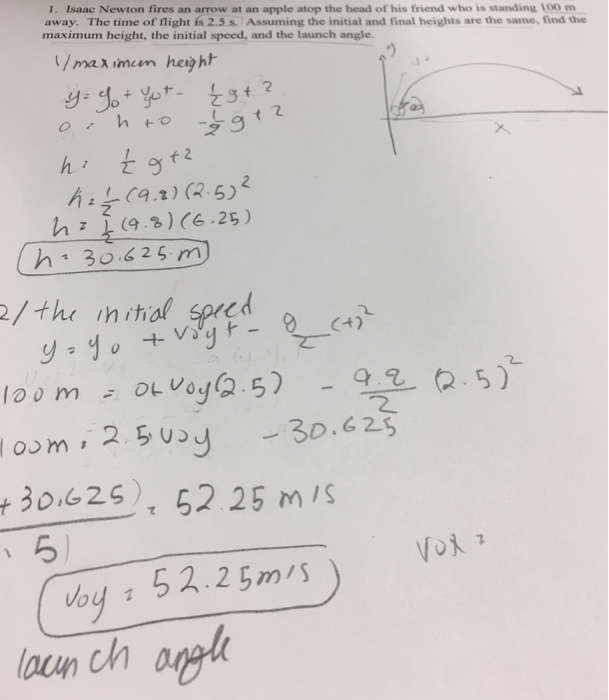 1. Isaac Newton fires an arrow at an apple atop the head of his friend who is standing 100 m
away. The time of flight is 2.5 s. Assuming the initial and final heights are the same, find the
maximum height, the initial speed, and the launch angle.
1/ maximum height
y = y0 + y0t - 1/2 gt2
0 = h + 0 - 1/2 gt2
h = 1/2 gt2
h = 1/2 (9.8)(2.5)2
h = 1/2 (9.8)(6.25)
h = 30.625 m
x
2/ the initial speed
y = y0 + v0yt - g/2 (t)2
100 m = 0 + v0y(2.5) - 9.8/2 (2.5)2
100m = 2.5 v0y - 30.625
+ 30.625) = 52.25 m/s
5)
v0x =
v0y = 52.25 m/s
launch angle